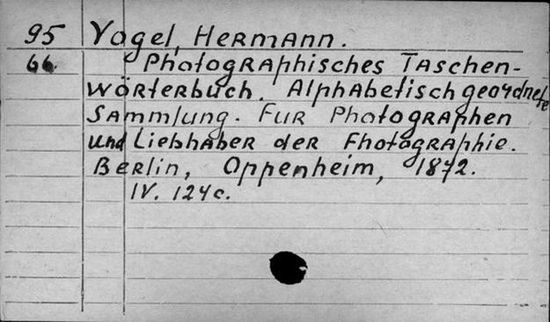 95 Vogel, Hermann.
66. Photographisches Taschen-
wörterbuch. Alphabetisch geordnete
Sammlung. Fur Photographen
und Liebhaber der Fhotographie.
Berlin, Oppenheim, 1872.
IV. 124 c.